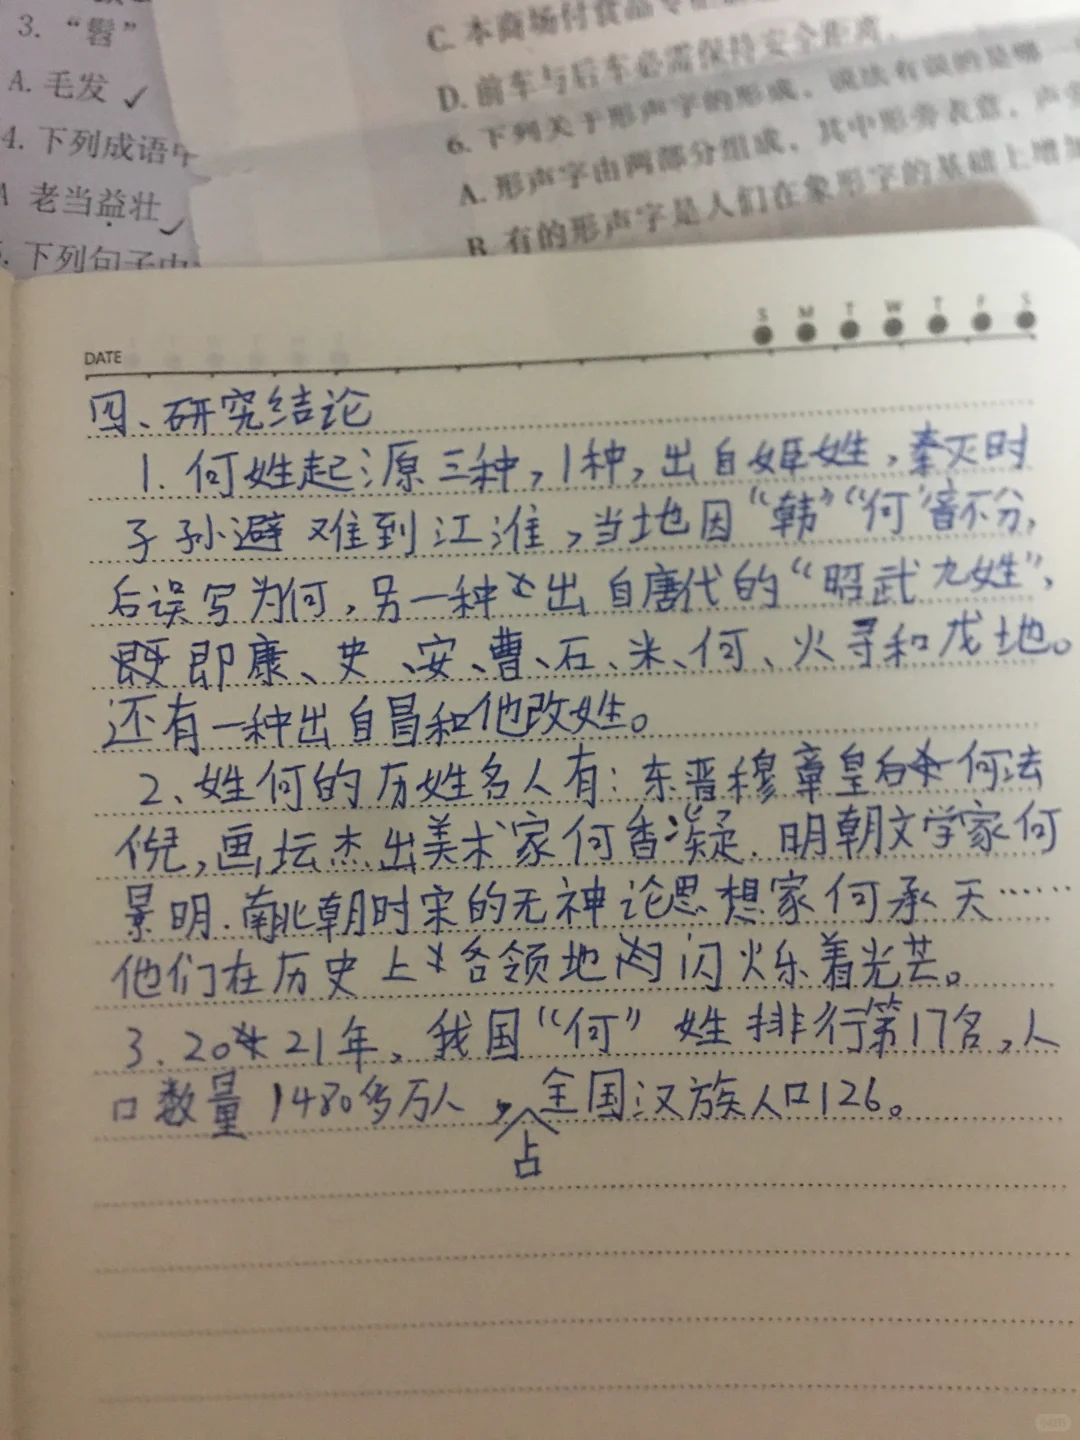 3. “髫”
A. 毛发 ✓
4. 下列成语中
A 老当益壮 ✓
下列句子中
C. 本商场付食品
D. 前车与后车必需保持安全距离.
6. 下列关于形声字的形成，说法有误的是哪一
A. 形声字由两部分组成，其中形旁表意，声旁
B. 有的形声字是人们在象形字的基础上增加
DATE
S M T W T F S
四、研究结论
1. 何姓起源三种，1种，出自姬姓，秦灭时
子孙避难到江淮，当地因“韩”“何”音不分，
后误写为何，另一种出自唐代的“昭武九姓”，
即康、史、安、曹、石、米、何、火寻和戊地。
还有一种出自冒和他改姓。
2、姓何的历姓名人有：东晋穆章皇后何法
倪，画坛杰出美术家何香凝．明朝文学家何
景明．南北朝时宋的无神论思想家何承天……
他们在历史上各领地闪烁着光芒。
3. 2021年，我国“何”姓排行第17名，人
口数量1480多万人，占全国汉族人口126。